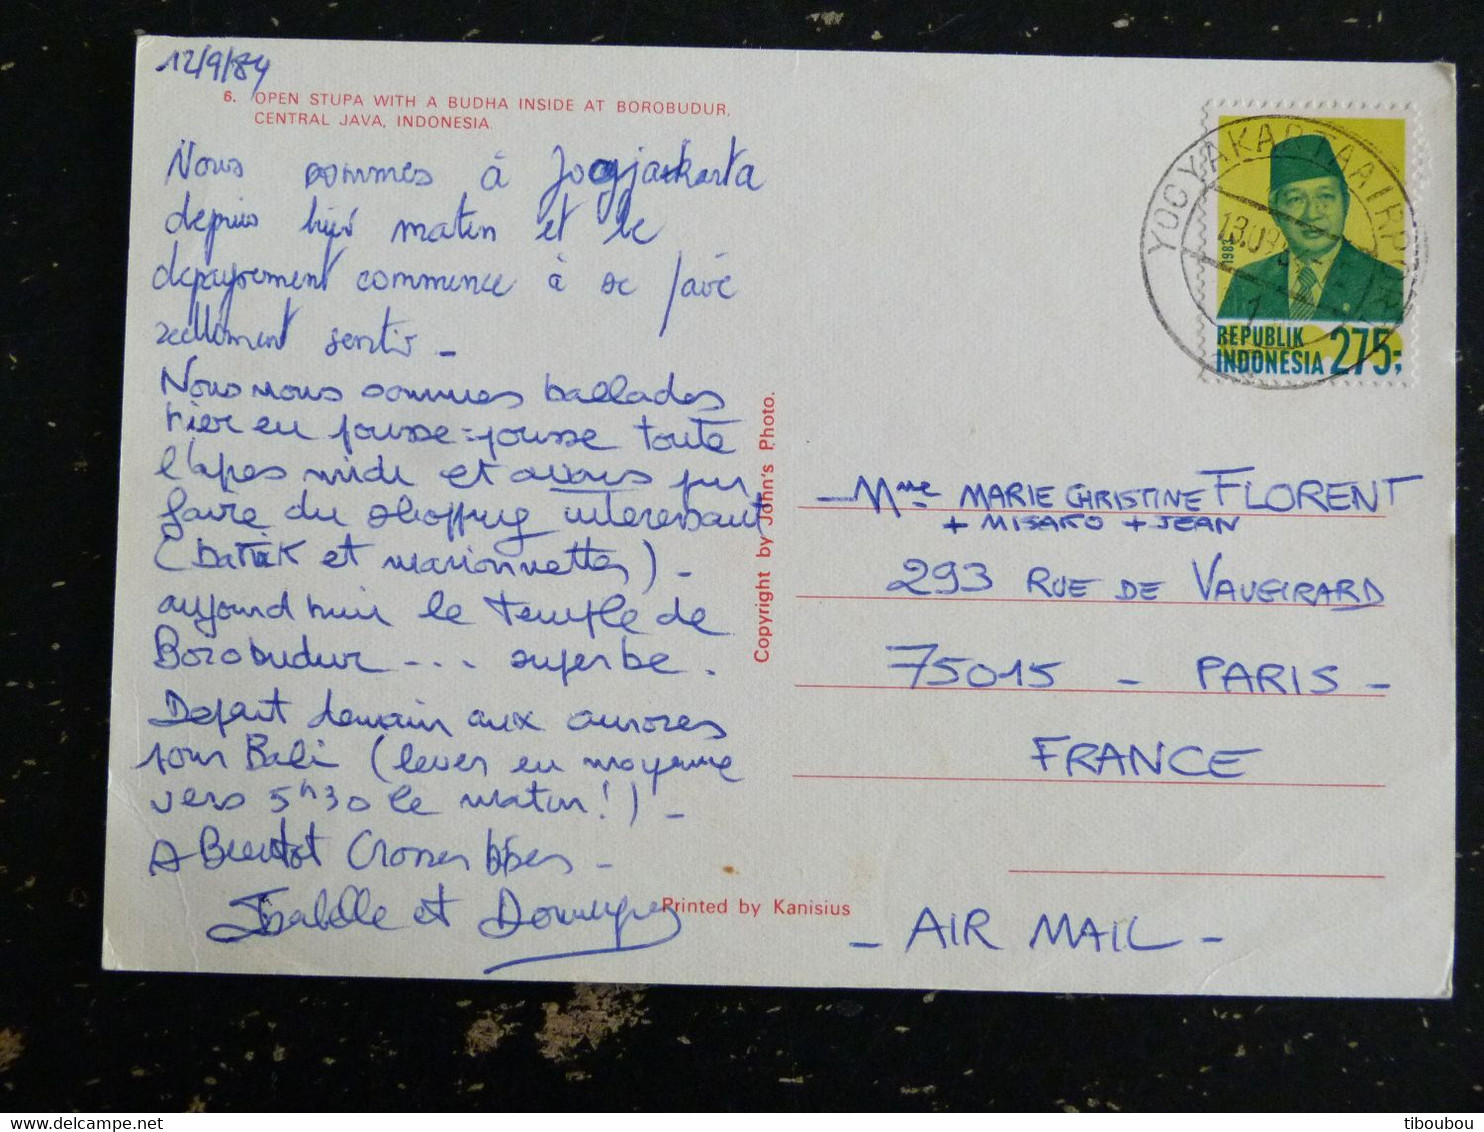 12/9/84
6. OPEN STUPA WITH A BUDHA INSIDE AT BOROBUDUR,
CENTRAL JAVA, INDONESIA.
Nous sommes à Jogjakarta
depuis hier matin et le
depaysement commence à se faire
reellement sentir -
Nous nous sommes ballades
hier en pousse-pousse toute
l'apres midi et avons pu
faire du shopping interessant
(batik et marionnettes) -
aujourd'hui le temple de
Borobudur --- superbe.
Depart demain aux aurores
pour Bali (lever en moyenne
vers 5h30 le matin!) -
A Bientot Grosses bises -
Isabelle et
Copyright by John's Photo.
Printed by Kanisius
YOGYAKARTAAIRPORT
13.09.8
1
1983
REPUBLIK
INDONESIA 275,-
Mme MARIE CHRISTINE FLORENT
+ MISAKO + JEAN
293 RUE DE VAUGIRARD
75015 - PARIS -
FRANCE
- AIR MAIL -
tiboubou